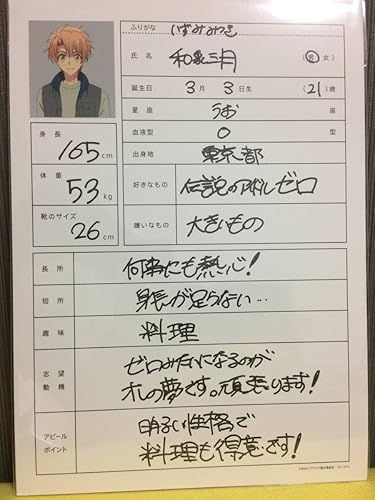 ふりがな いずみみつき
氏名 和泉三月 (男・女)
誕生日 3月3日生 (21)歳
星座 うお座
血液型 O型
出身地 東京都
身長 165cm
体重 53kg
靴のサイズ 26cm
好きなもの 伝説のアイドルゼロ
嫌いなもの 大きいもの
長所 何事にも熱心!
短所 身長が足らない…
趣味 料理
志望動機 ゼロみたいになるのが
オレの夢です。頑張ります!
アピールポイント 明るい性格で
料理も得意です!